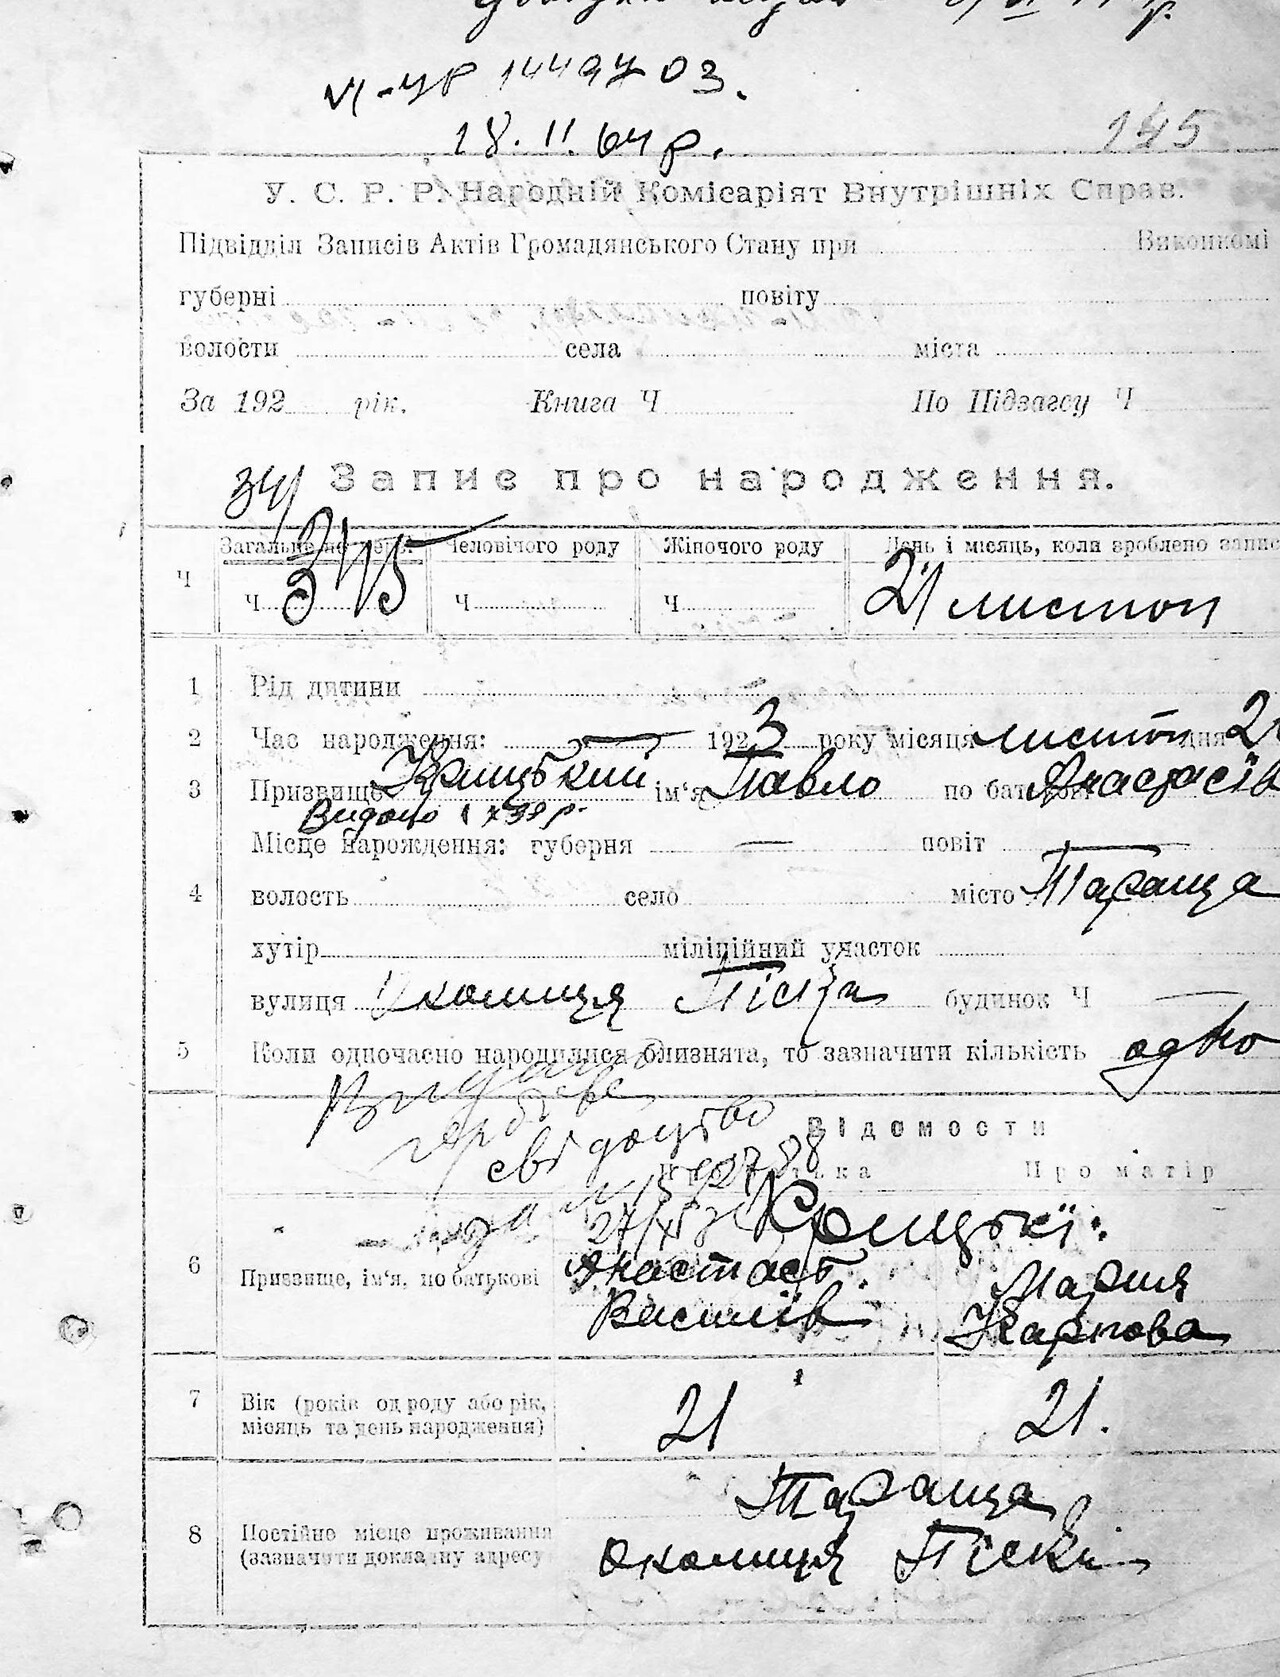 VI-УР 1449703.
18.II.64 р.
145
У. С. Р. Р. Народній Комісаріят Внутрішніх Справ.
Підвідділ Записів Актів Громадянського Стану при Виконкомі
губерні повіту
волости села міста
За 192 рік. Книга Ч По Підзагсу Ч
341 Запис про народження.
Загальне по черзі Человічого роду Жіночого роду День і місяць, коли зроблено запис
Ч Ч 345 Ч Ч 21 листоп
1 Рід дитини
2 Час народження: 1923 року місяця листоп дня 2
3 Призвище Крицький ім'я Павло по батькові Анастасів
Видано 1938 р.
Місце нарождення: губерня — повіт
4 волость село місто Тараща
хутір міліційний участок
вулиця Околиця Піски будинок Ч —
5 Коли одночасно народилися близнята, то зазначити кількість одно
Видано
гербове
свідоцтво
Відомости
Про батька Про матір
Крицькі:
6 Призвище, ім'я, по батькові Анастась Мария
Василів Карпова
7 Вік (років од роду або рік, місяць та день народження) 21 21.
Тараща
8 Постійне місце проживання (зазначити докладну адресу) Околиця Піски